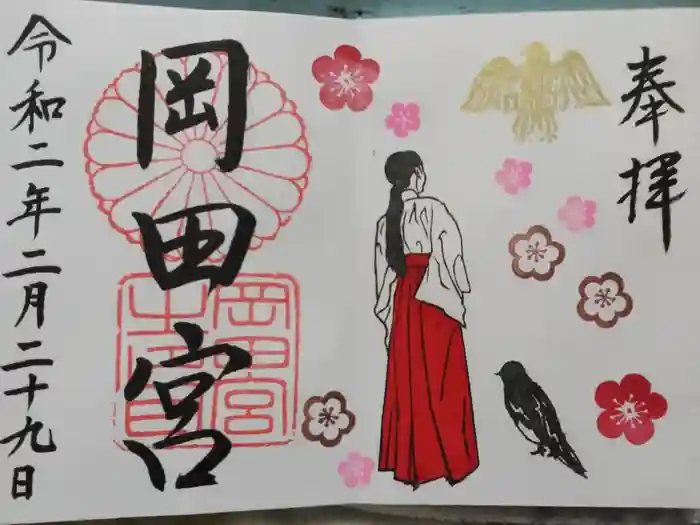 奉拝
岡田宮
令和二年二月二十九日